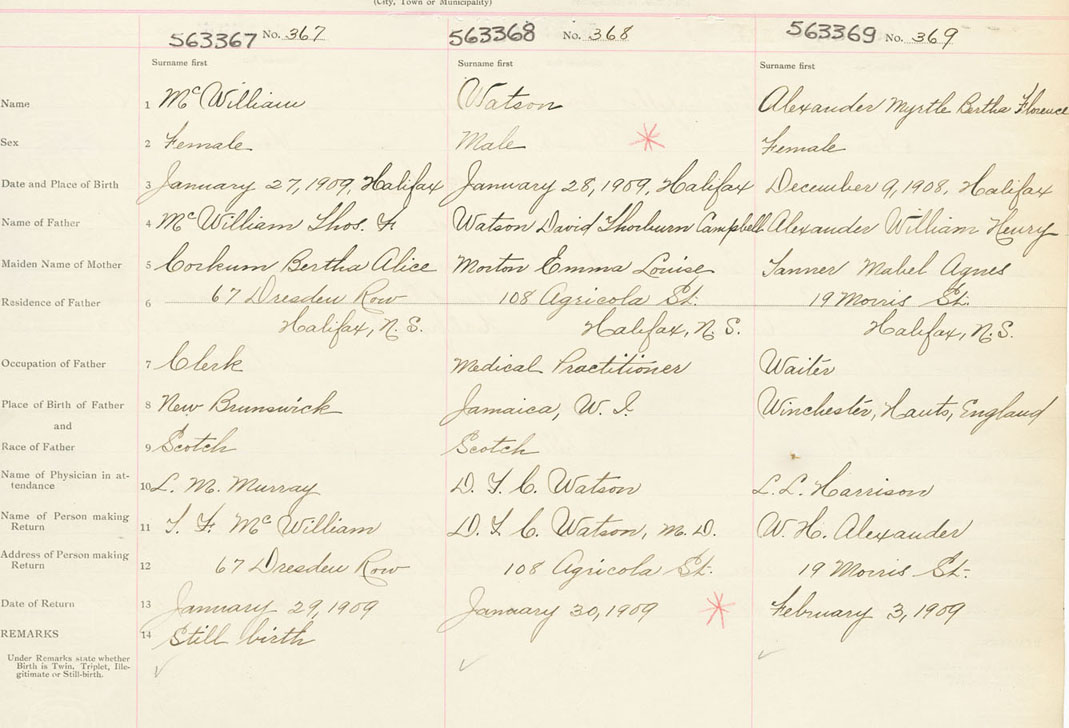 (City, Town or Municipality)
563367 No. 367 563368 No. 368 563369 No. 369
Surname first Surname first Surname first
Name 1 McWilliam Watson Alexander Myrtle Bertha Florence
Sex 2 Female Male Female
Date and Place of Birth 3 January 27, 1909, Halifax January 28, 1909, Halifax December 9, 1908, Halifax
Name of Father 4 McWilliam Thos. F Watson David Thorburn Campbell Alexander William Henry
Maiden Name of Mother 5 Corkum Bertha Alice Morton Emma Louise Tanner Mabel Agnes
Residence of Father 6 67 Dresden Row 108 Agricola St. 19 Morris St.
Halifax, N.S. Halifax, N.S. Halifax, N.S.
Occupation of Father 7 Clerk Medical Practitioner Waiter
Place of Birth of Father 8 New Brunswick Jamaica, W. I. Winchester, Hants, England
and
Race of Father 9 Scotch Scotch
Name of Physician in at-
tendance 10 L. M. Murray D. T. C. Watson L. L. Harrison
Name of Person making
Return 11 T. F. McWilliam D. T. C. Watson, M.D. W. H. Alexander
Address of Person making
Return 12 67 Dresden Row 108 Agricola St. 19 Morris St.
Date of Return 13 January 29, 1909 January 30, 1909 February 3, 1909
REMARKS 14 Still birth
Under Remarks state whether
Birth is Twin, Triplet, Ille-
gitimate or Still-birth.